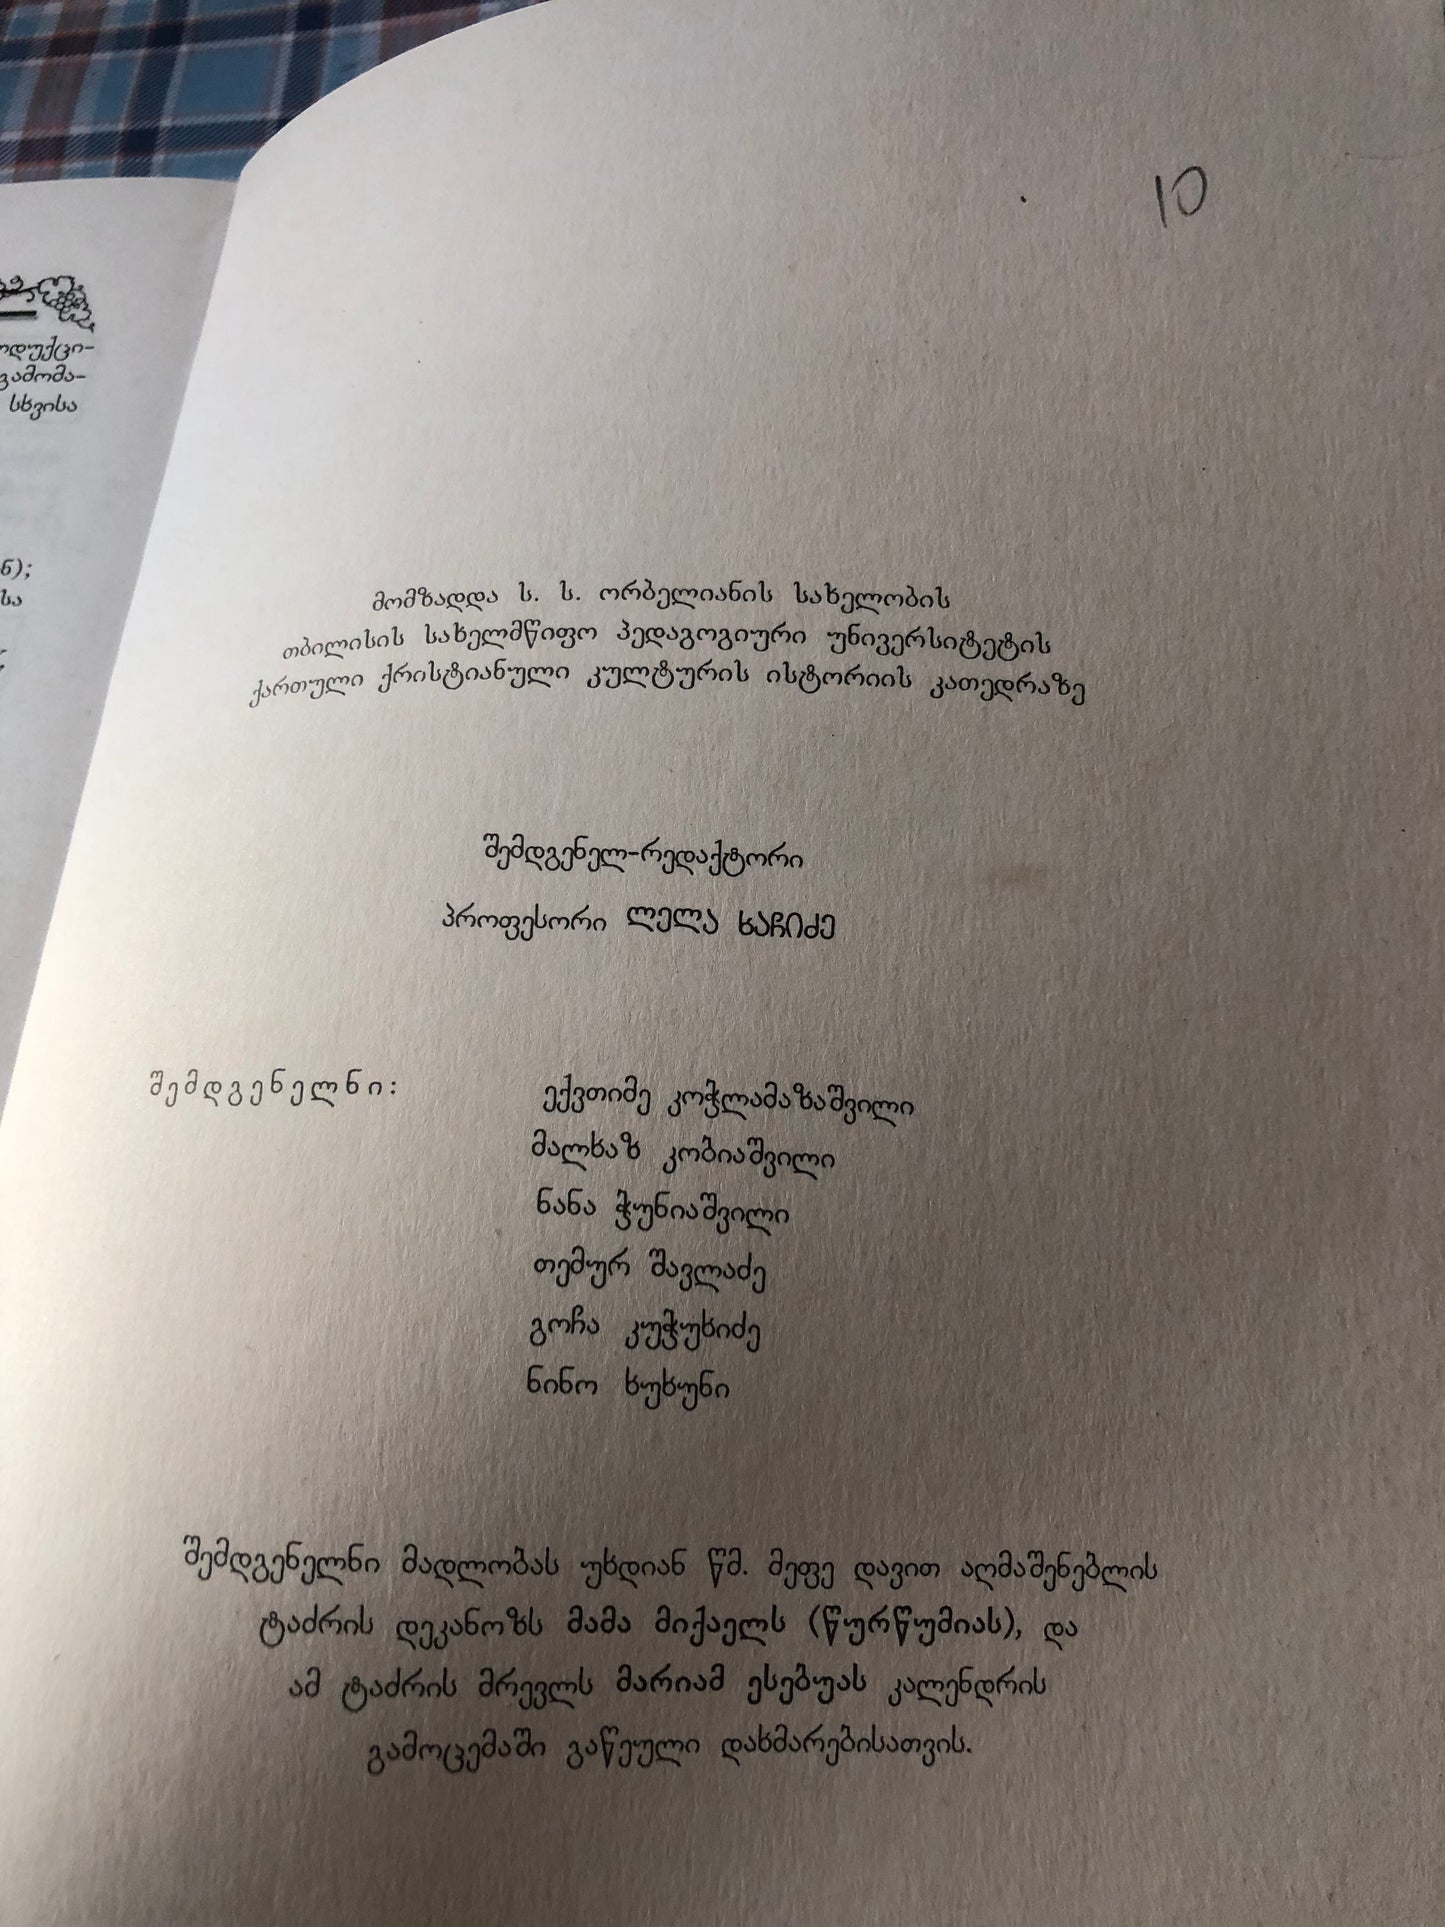 ოდუქცი-
გამომა-
სხვისა
ნ);
სა
10
მომზადდა ს. ს. ორბელიანის სახელობის
თბილისის სახელმწიფო პედაგოგიური უნივერსიტეტის
ქართული ქრისტიანული კულტურის ისტორიის კათედრაზე
შემდგენელ-რედაქტორი
პროფესორი ლელა ხაჩიძე
შემდგენელნი:
ექვთიმე კოჭლამაზაშვილი
მალხაზ კობიაშვილი
ნანა ჭუნიაშვილი
თემურ შავლაძე
გოჩა კუჭუხიძე
ნინო ხუხუნი
შემდგენელნი მადლობას უხდიან წმ. მეფე დავით აღმაშენებლის
ტაძრის დეკანოზს მამა მიქაელს (წურწუმიას), და
ამ ტაძრის მრევლს მარიამ ესებუას კალენდრის
გამოცემაში გაწეული დახმარებისათვის.